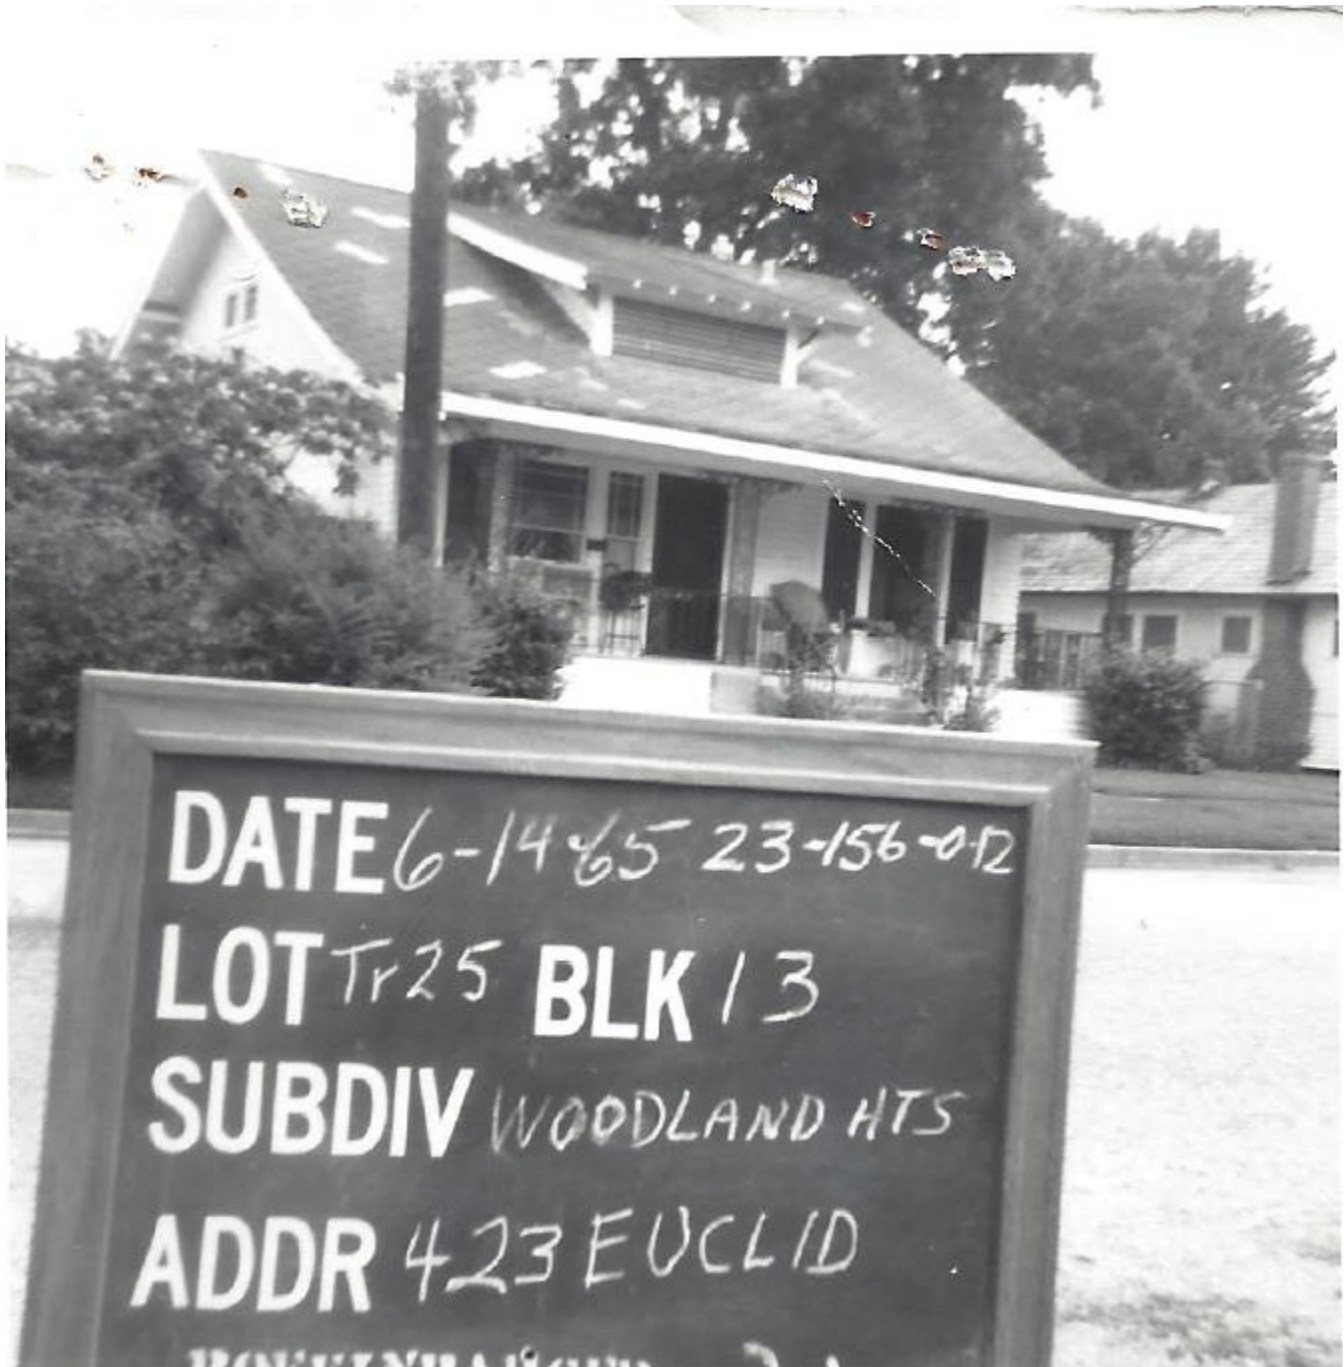 DATE 6-14-65 23-156-012
LOT Tr25 BLK 13
SUBDIV WOODLAND HTS
ADDR 423 EUCLID